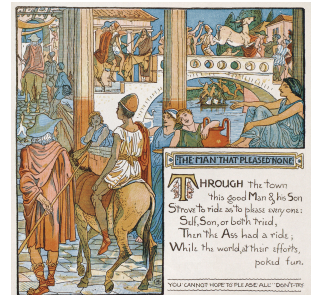 THE MAN THAT PLEASED NONE
THROUGH the town
this good Man & his Son
Strove to ride as to please everyone:
Self, Son, or both tried,
Then the Ass had a ride;
While the world, at their efforts,
poked fun.
YOU CANNOT HOPE TO PLEASE ALL - DON'T TRY